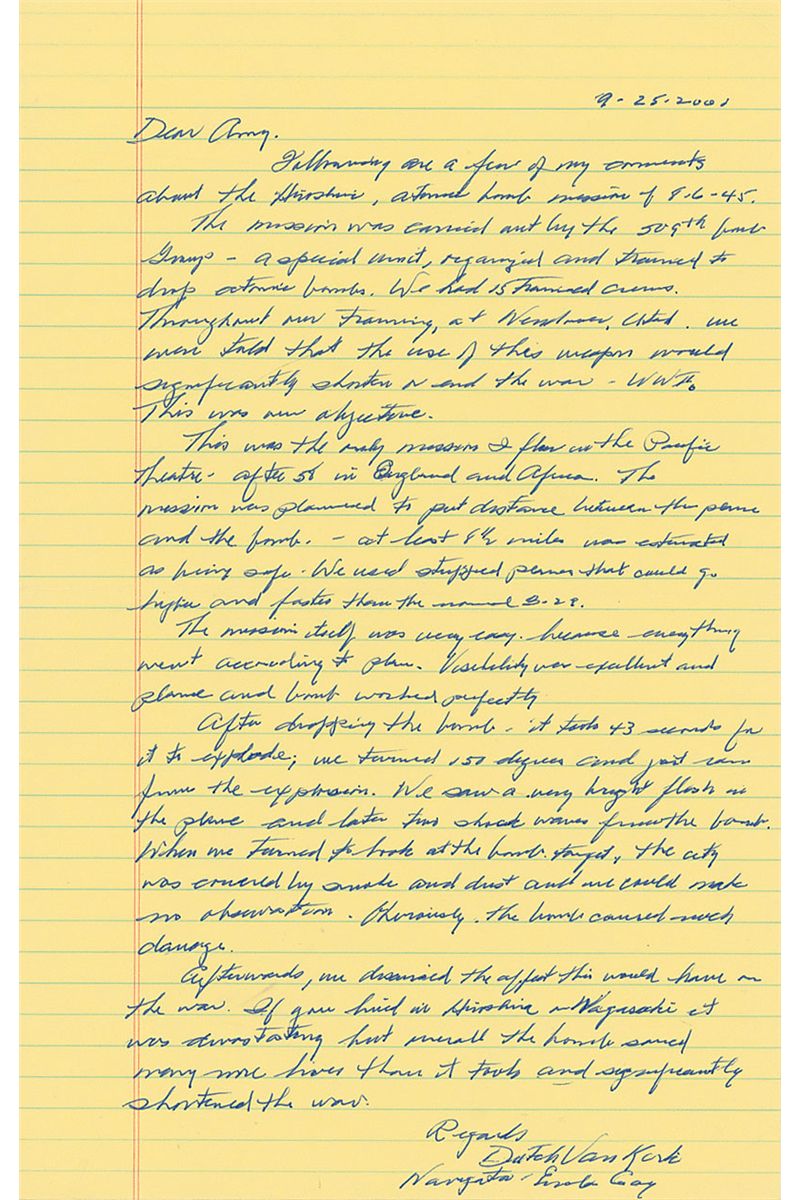 9-25-2001
Dear Amy.
Following are a few of my comments
about the Hiroshima, atomic bomb mission of 8-6-45.
The mission was carried out by the 509th bomb
Group - a special unit, organized and trained to
drop atomic bombs. We had 15 trained crews.
Throughout our training, at Wendover, Utah. we
were told that the use of this weapon would
significantly shorten or end the war - WWII.
This was our objective.
This was the only mission I flew in the Pacific
Theatre - after 58 in England and Africa. The
mission was planned to put distance between the plane
and the bomb. - at least 8 1/2 miles was estimated
as being safe. We used stripped planes that could go
higher and faster than the normal B-29.
The mission itself was very easy. because everything
went according to plan. Visibility was excellent and
plane and bomb worked perfectly
After dropping the bomb - it took 43 seconds for
it to explode; we turned 150 degrees and just ran
from the explosion. We saw a very bright flash in
the plane and later two shock waves from the bomb.
When we turned to look at the bomb target, the city
was covered by smoke and dust and we could make
no observation. Obviously. the bomb caused much
damage.
Afterwards, we discussed the affect this would have on
the war. If you lived in Hiroshima or Nagasaki it
was devastating but overall the bomb saved
many more lives than it took and significantly
shortened the war.
Regards
Dutch Van Kirk
Navigator - Enola Gay